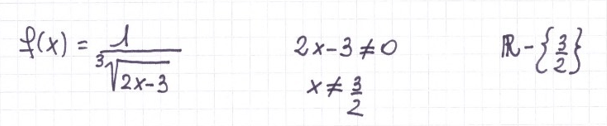 f(x) = 1/∛(2x-3)
2x-3≠0
x≠3/2
ℝ-{3/2}